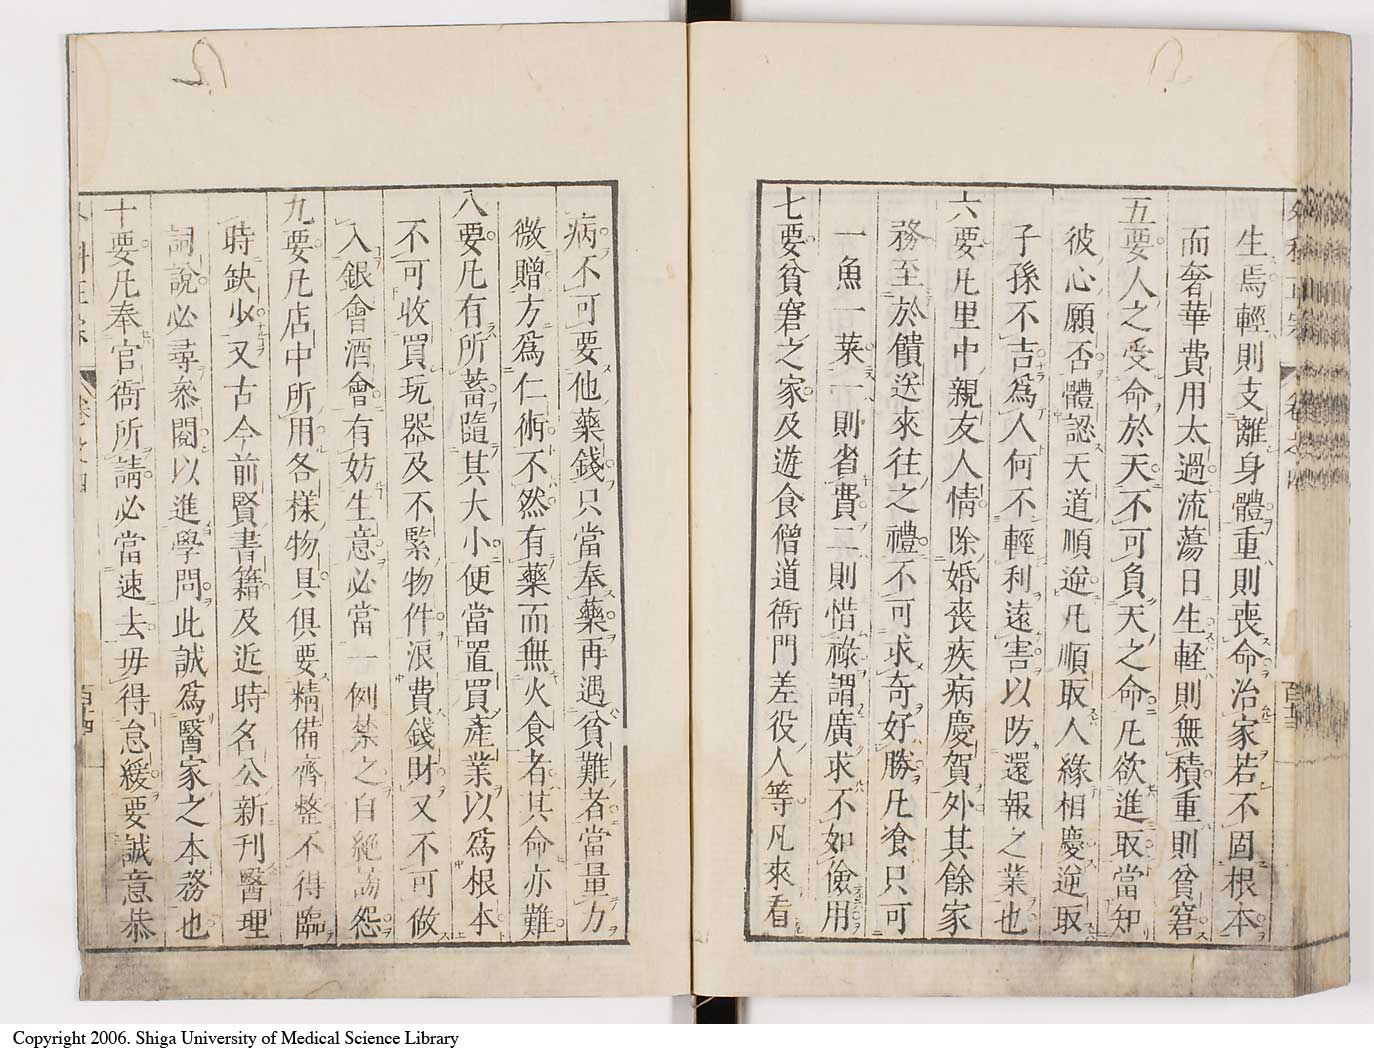 生焉輕則支離身體重則喪命治家若不固根本
而奢華費用太過流蕩日生輕則無積重則貧窘
五要人之受命於天不可負天之命凡欲進取當知
彼心願否體認天道順逆凡順取人緣相慶逆取
子孫不吉爲人何不輕利遠害以防還報之業也
六要凡里中親友人情除婚喪疾病慶賀外其餘家
務至於饋送來往之禮不可求奇好勝凡飡只可
一魚一菜一則省費二則惜祿謂廣求不如儉用
七要貧窘之家及遊食僧道衙門差役人等凡來看
病不可要他藥錢只當奉藥再遇貧難者當量力
微贈方爲仁術不然有藥而無火食者其命亦難
八要凡有所蓄隨其大小便當置買產業以爲根本
不可收買玩器及不緊物件浪費錢財又不可做
入銀會酒會有妨生意必當一例禁之自絕謗怨
九要凡店中所用各樣物具俱要精備齊整不得臨
時缺少又古今前賢書籍及近時名公新刊醫理
詞說必尋參閱以進學問此誠爲醫家之本務也
十要凡奉官衙所請必當速去毋得怠緩要誠意恭
Copyright 2006. Shiga University of Medical Science Library